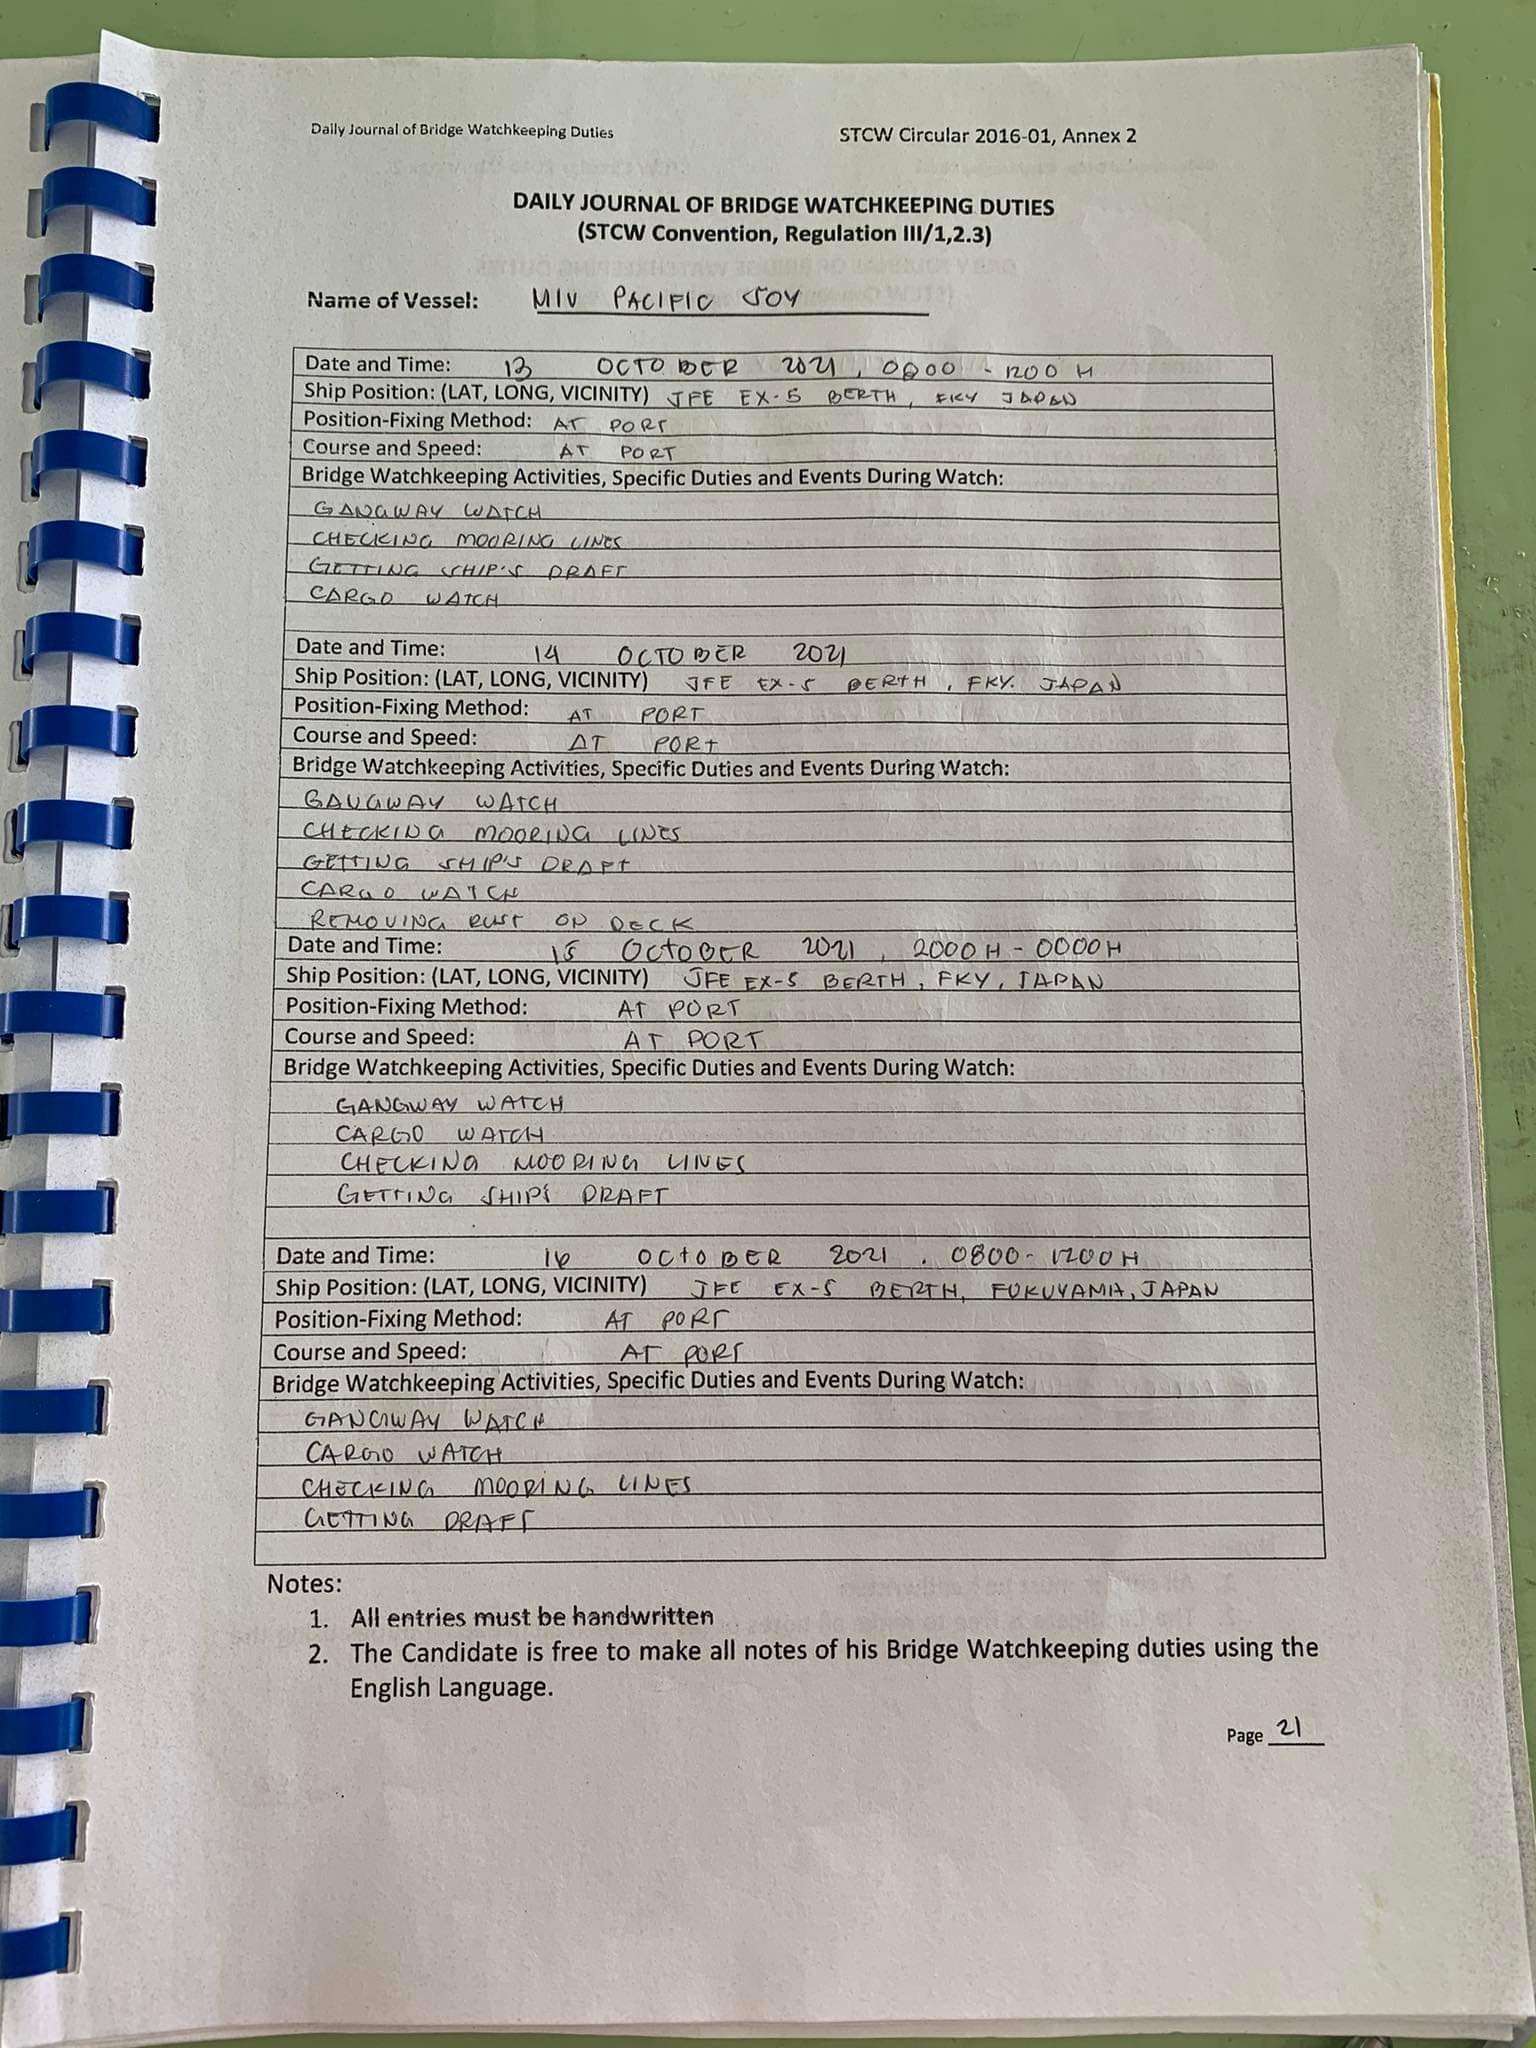 Daily Journal of Bridge Watchkeeping Duties STCW Circular 2016-01, Annex 2
DAILY JOURNAL OF BRIDGE WATCHKEEPING DUTIES
(STCW Convention, Regulation III/1,2.3)
Name of Vessel: M/V PACIFIC JOY
Date and Time: 13 OCTOBER 2021, 0800 - 1200 H
Ship Position: (LAT, LONG, VICINITY) JFE EX-5 BERTH, FKY JAPAN
Position-Fixing Method: AT PORT
Course and Speed: AT PORT
Bridge Watchkeeping Activities, Specific Duties and Events During Watch:
GANGWAY WATCH
CHECKING MOORING LINES
GETTING SHIP'S DRAFT
CARGO WATCH
Date and Time: 14 OCTOBER 2021
Ship Position: (LAT, LONG, VICINITY) JFE EX-5 BERTH, FKY. JAPAN
Position-Fixing Method: AT PORT
Course and Speed: AT PORT
Bridge Watchkeeping Activities, Specific Duties and Events During Watch:
GANGWAY WATCH
CHECKING MOORING LINES
GETTING SHIP'S DRAFT
CARGO WATCH
REMOVING RUST ON DECK
Date and Time: 15 OCTOBER 2021, 2000H - 0000H
Ship Position: (LAT, LONG, VICINITY) JFE EX-5 BERTH, FKY, JAPAN
Position-Fixing Method: AT PORT
Course and Speed: AT PORT
Bridge Watchkeeping Activities, Specific Duties and Events During Watch:
GANGWAY WATCH
CARGO WATCH
CHECKING MOORING LINES
GETTING SHIP'S DRAFT
Date and Time: 16 OCTOBER 2021. 0800-1200H
Ship Position: (LAT, LONG, VICINITY) JFE EX-5 BERTH, FUKUYAMA, JAPAN
Position-Fixing Method: AT PORT
Course and Speed: AT PORT
Bridge Watchkeeping Activities, Specific Duties and Events During Watch:
GANGWAY WATCH
CARGO WATCH
CHECKING MOORING LINES
GETTING DRAFT
Notes:
1. All entries must be handwritten
2. The Candidate is free to make all notes of his Bridge Watchkeeping duties using the
English Language.
Page 21